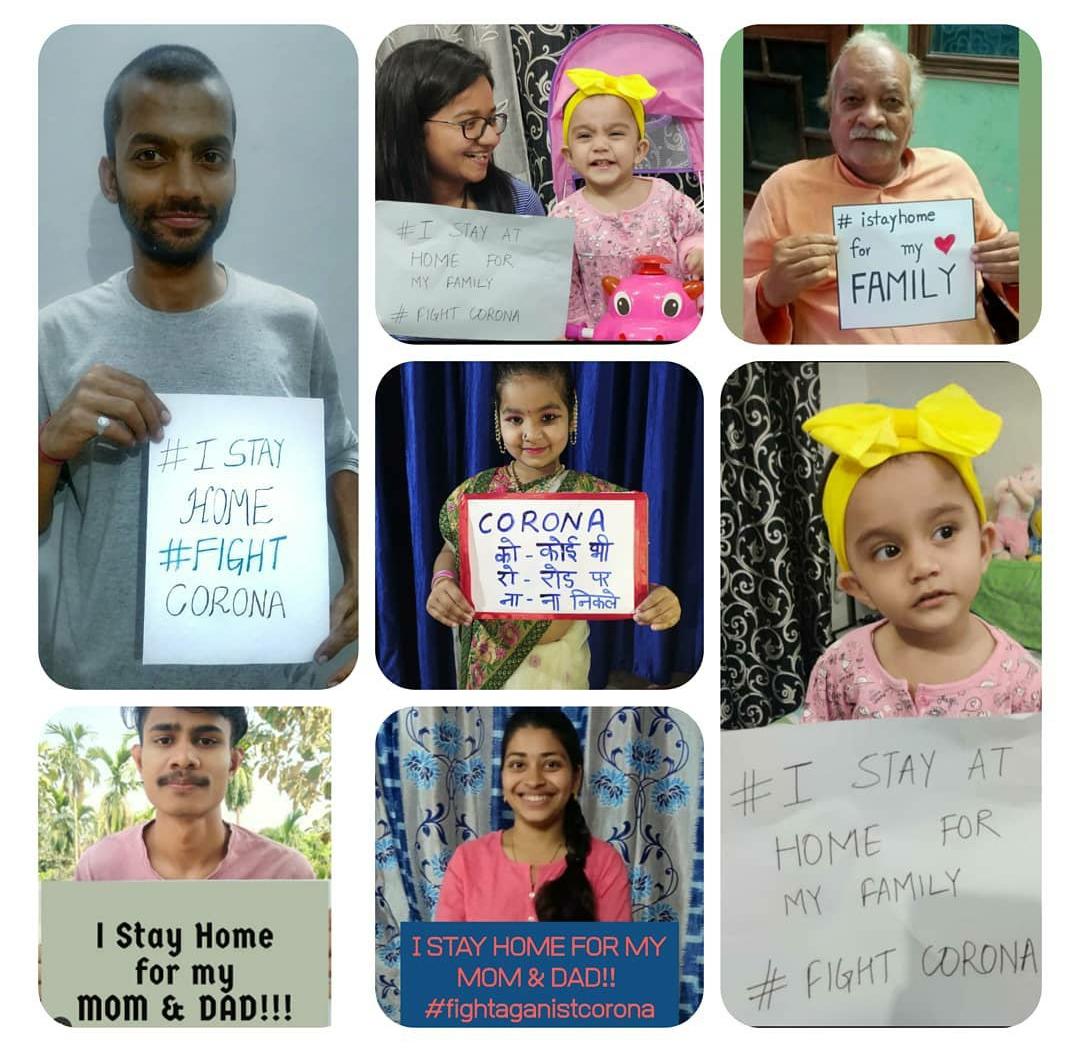 #I STAY
HOME
#FIGHT
CORONA
#I STAY AT
HOME FOR
MY FAMILY
# FIGHT CORONA
# istayhome
for my
FAMILY
CORONA
को - कोई भी
रो - रोड पर
ना - ना निकले
#I STAY AT
HOME FOR
MY FAMILY
# FIGHT CORONA
I Stay Home
for my
MOM & DAD!!!
I STAY HOME FOR MY
MOM & DAD!!
#fightaganistcorona